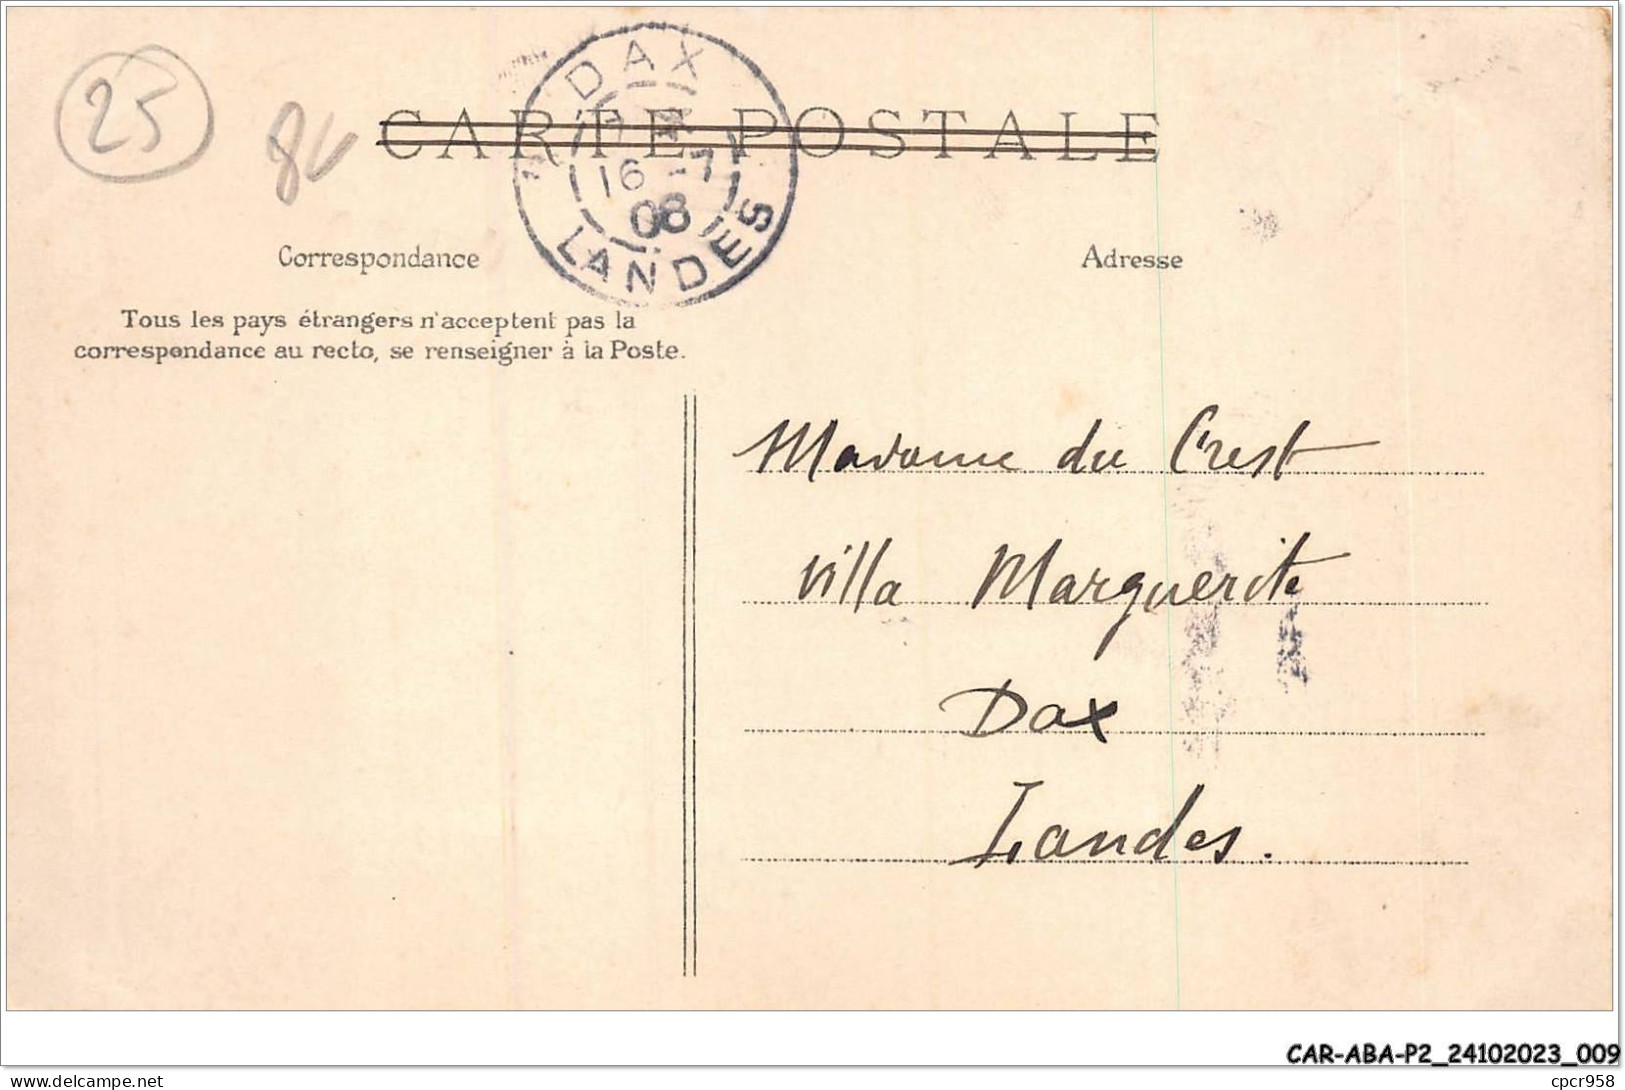 25
CARTE POSTALE
DAX
16 -7
08
LANDES
Correspondance
Adresse
Tous les pays étrangers n'acceptent pas la
correspondance au recto, se renseigner à la Poste.
Madame du Crest
Villa Marguerite
Dax
Landes.
CAR-ABA-P2_24102023_009
delcampe.net
cpcr958